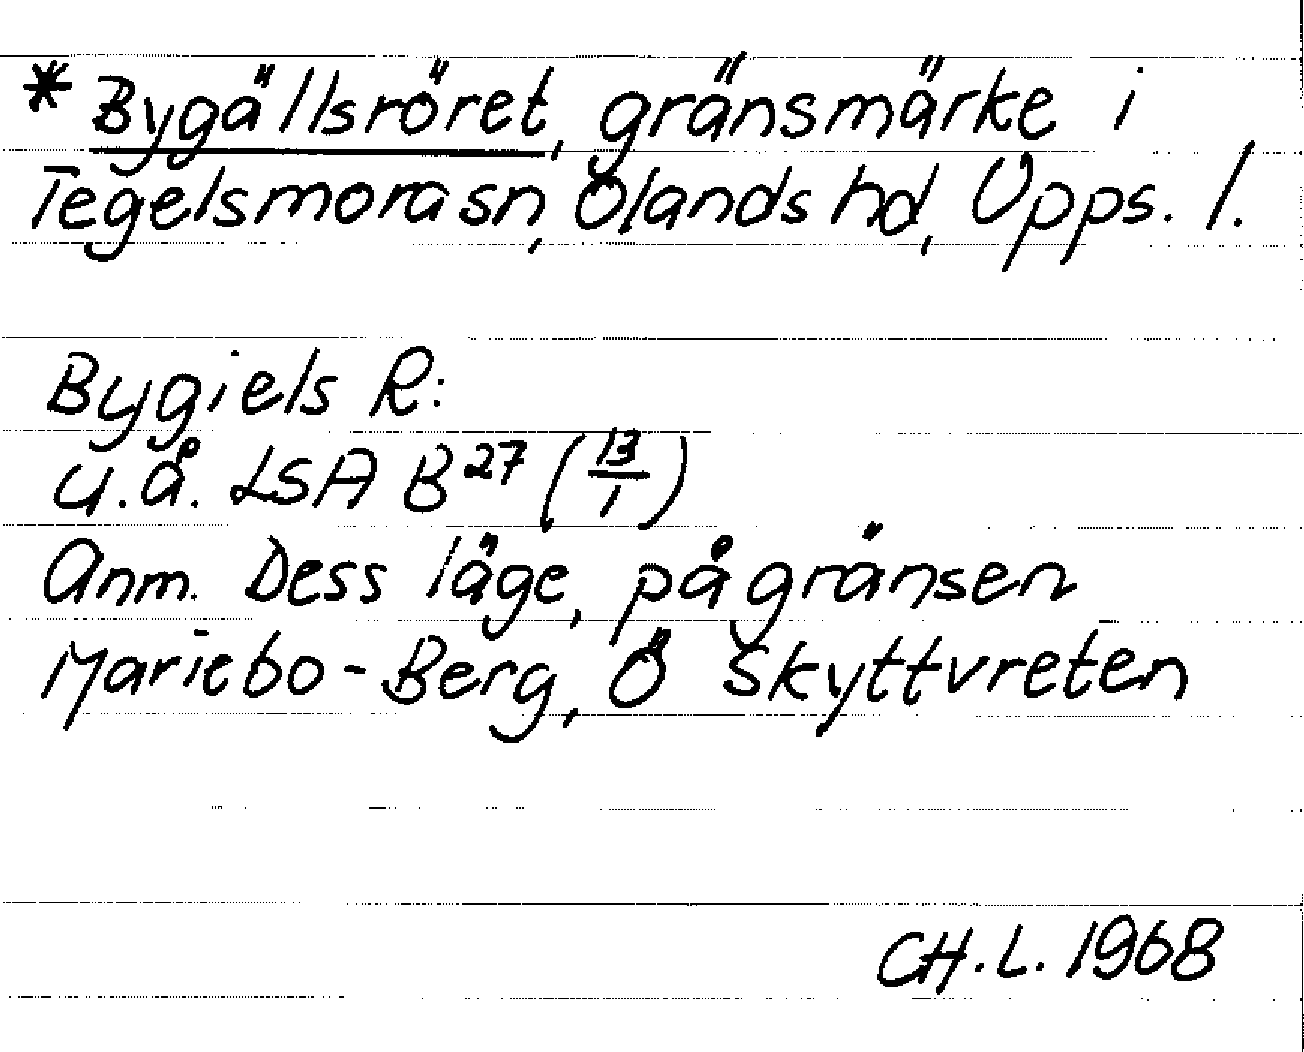 * Bygällsröret, gränsmärke i
Tegelsmora sn, Ölands hd, Upps. l.
Bygiels R:
u.å. LSA B27 (13/1)
Anm. Dess läge, på gränsen
Mariebo - Berg, Ö Skyttvreten
CH.L. 1968